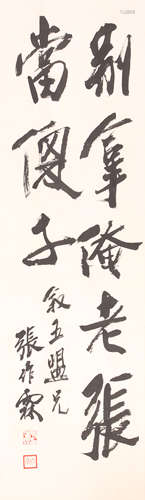 別拿俺老張
當傻子
叙五盟兄
張作霖